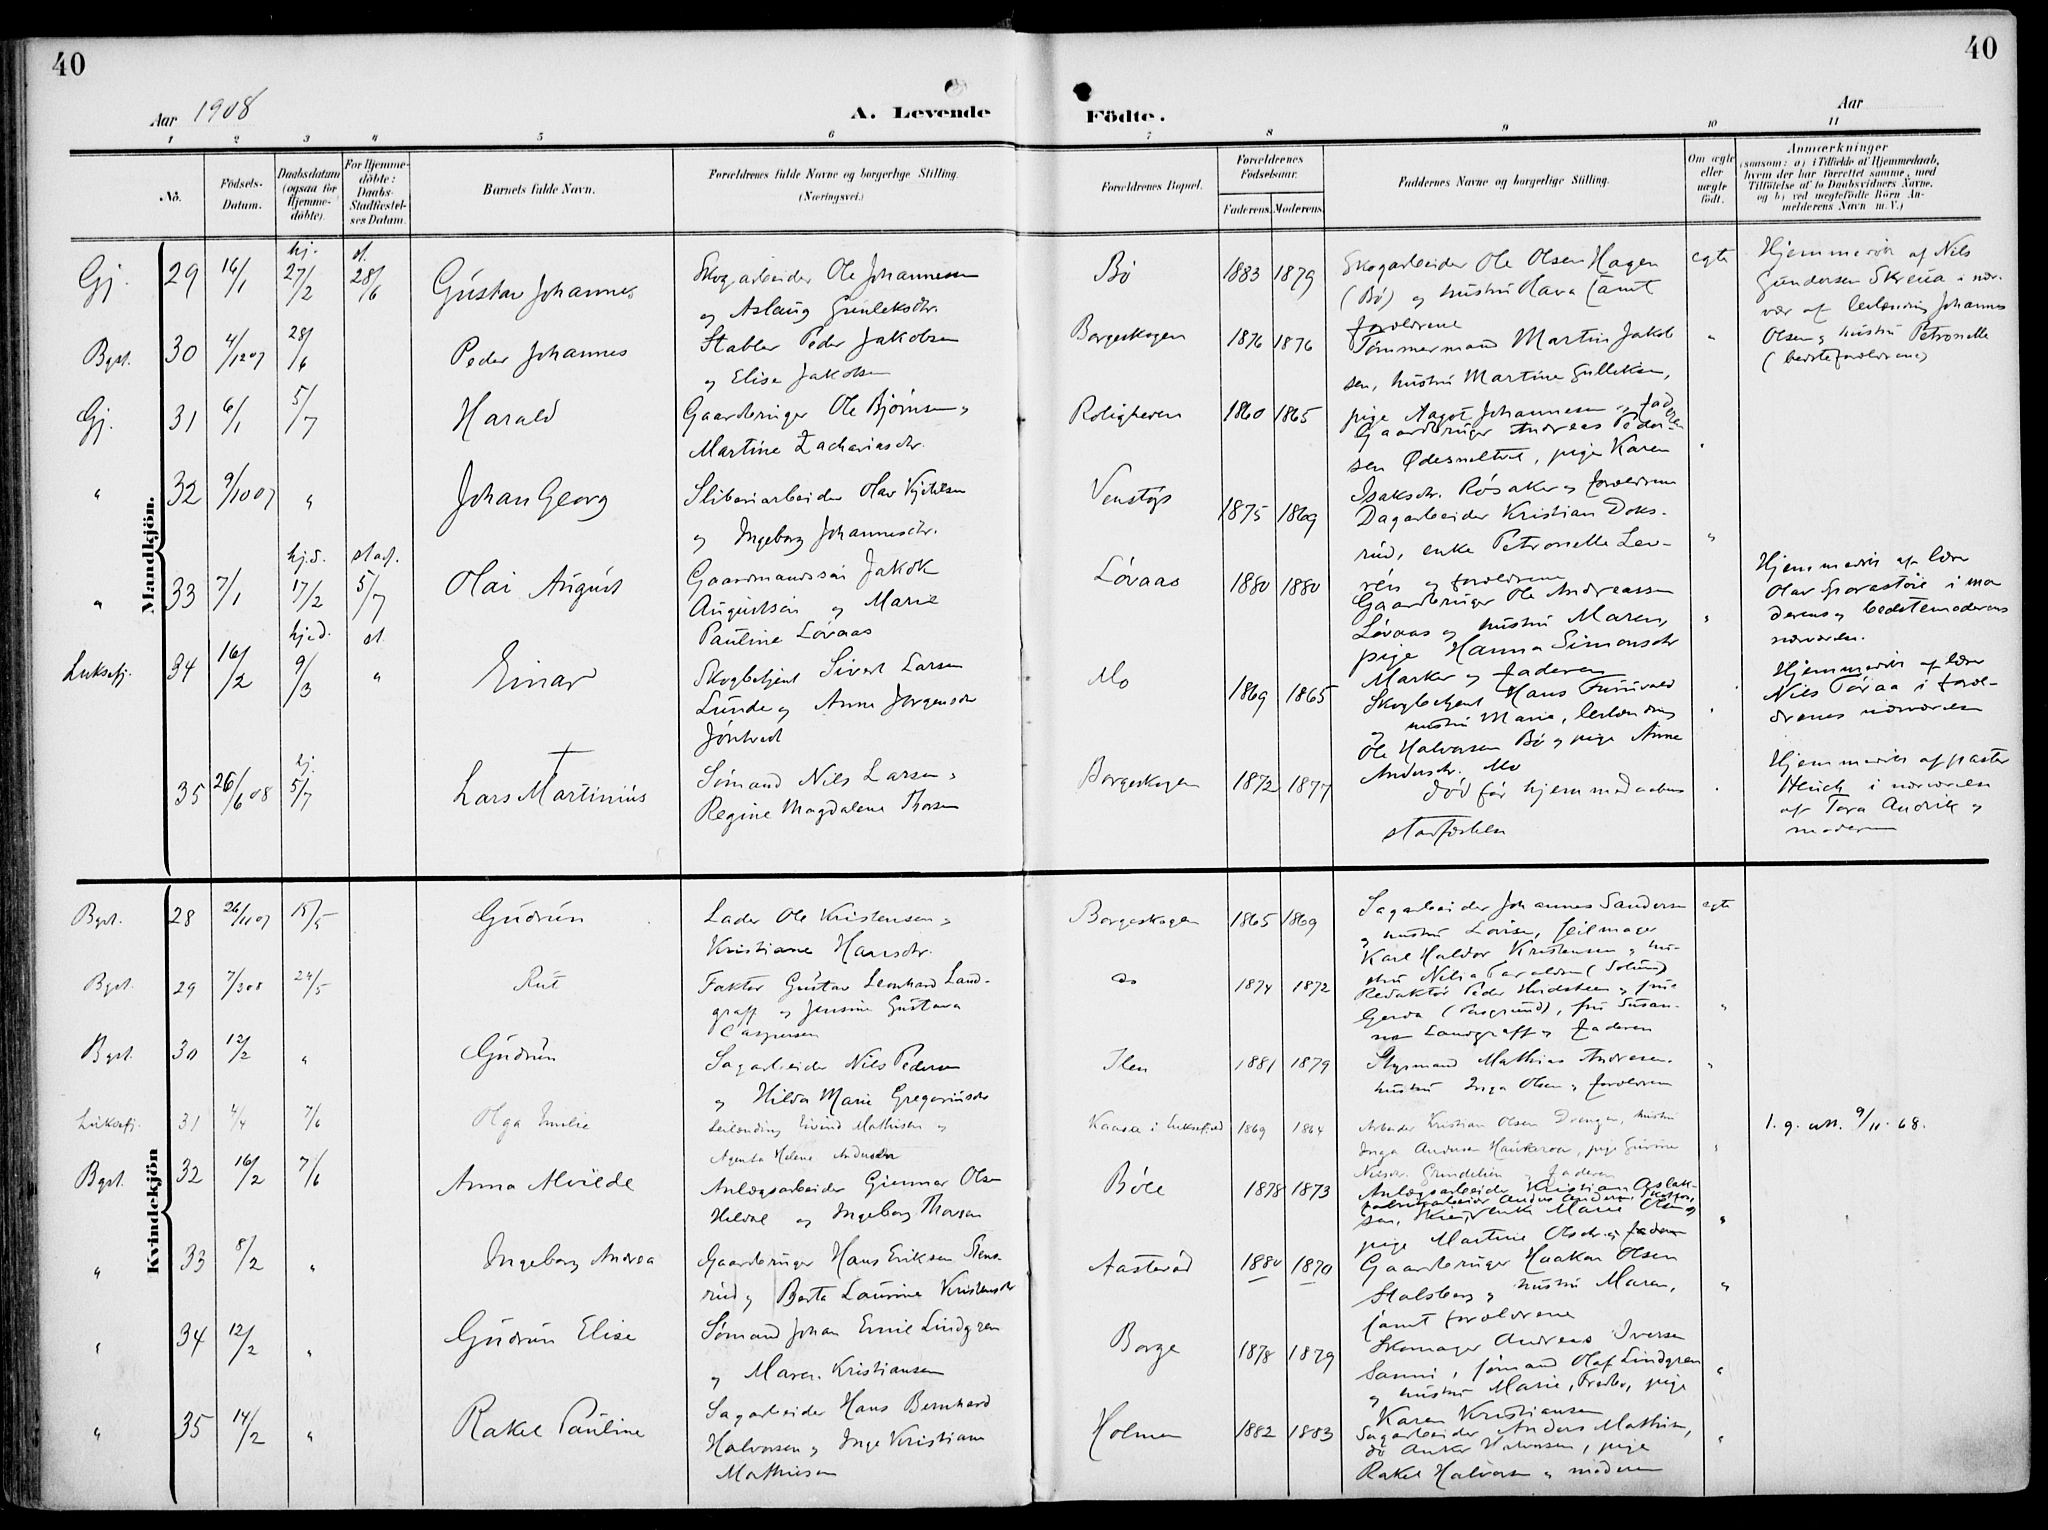 40
40
Aar 1908
A. Levende
Födte.
Aar
1 2 3 4 5 6 7 8 9 10 11
No.
Födsels-Datum.
Daabsdatum (ogsaa for Hjemme-döbte).
For Hjemme-döbte: Daabs-Stadfæstel-ses Datum.
Barnets fulde Navn.
Forældrenes fulde Navne og borgerlige Stilling.
(Næringsvei.)
Forældrenes Bopæl.
Forældrenes Födselsaar.
Faderens. Moderens.
Faddernes Navne og borgerlige Stilling.
Om ægte eller uægte födt.
Anmærkninger
(saasom: a) i Tilfælde af Hjemmedaab,
hvem der har forrettet samme, med
Tilföielse af to Daabsvidners Navne,
og b) ved uægtefödte Börn An-
melderens Navn m. V.)
Mandkjön.
Gj. 29 16/1 hj. 27/2 st. 28/6 Gustav Johannes
Skogarbeider Ole Johannesen
og Aslaug
Bø 1883 1879
Skogarbeider Ole Olsen Hagen
(Bø) og hustru samt
forældrene
egte
af Nils
Gundersen i nær-
vær af Johannes
Olsen og hustru Petronelle
(bedsteforældrene)
Bgst. 30 4/12 07 28/6 Peder Johannes
Stabler Peder Jakobsen
og Elise Jakobsen
Borgeskogen 1876 1876 "
Tømmermand Martin Jakob
sen, hustru Martine Gulliksen,
pige Aagot Johannesen og faderen
Gj. 31 6/1 5/7 Harald
Gaardbruger Ole Bjørnsen og
Martine Zachariasdtr.
Roligheden 1860 1865
Gaardbruger Andreas Peder-
sen , pige Karen
Isaksdtr. Røsaker og forældrene
" 32 9/10 07 " Johan Georg
Sliberiarbeider Olav Kjetilsen
og Ingeborg Johannesdtr.
Venstøp 1875 1869 "
Dagarbeider Kristian Doks-
rud, enke Petronelle
og forældrene
" 33 7/1 hj.d. 17/2 stadf. 5/7 Olai August
Gaardmandssøn Jakob
Augustson og Marie
Pauline Løvaas
Løvaas 1880 1880 "
Gaardbruger Ole Andreassen
Løvaas og hustru Maren,
pige Hanna Simonsdtr
Marker og faderen
Hjemmedøbt af lærer
Olav i mo
derens og bedstemoderens
nærværelse.
Luksefj. 34 16/2 hj.d. 9/3 st. " Einar
Skogbetjent Sivert Larsen
Lunde og Anne Jørgensdtr
Jøntvedt
Mo 1869 1865
Skogbetjent Hans
og hustru Marie, leilænding
Ole Halvorsen Bø og pige Anne
Andersdtr. Mo
Hjemmedøbt af lærer
Nils i foræl-
drenes nærværelse
35 26/6 08 hj. 5/7 Lars Martinius
Sømand Nils Larsen og
Regine Magdalene Thorsen
Borgeskogen 1872 1877
død før hjemmedaabens
stadfæstelse
Hjemmedøbt af pastor
Heuch i nærværelse
af Tora og
moderen
Kvindekjön
Bgst. 28 26/11 07 15/5 Gudrun
Lader Ole Kristensen og
Kristiane Hansdtr.
Borgeskogen 1865 1869 egte
Sagarbeider Johannes Sandersen
og hustru Lovise, feilmager
Karl Haldor Kristensen og hu-
stru
Bgst. 29 7/3 08 24/5 Rut
Faktor Gustav Leonhard Land-
graff og Jensine Gustava
Caspersen
do 1874 1872 "
Redaktør Peder og frue
Gerda (Porsgrund), fru Susan-
na Landgraff og faderen
Bgst. 30 12/2 " Gudrun
Sagarbeider Nils Pedersen
og Hilda Marie Gregoriusdtr
Ilen 1881 1879 "
Styrmand Mathias Andresen
hustru Inga Olsen og forældrene
Luksefj. 31 4/4 7/6 Olga Emilie
Leilænding Eivind Mathisen og
Agenta Helene Andersdtr
Kaasa i Luksefjeld 1869 1864 "
Arbeider Kristian Olsen , hustru
Inga Andersen , pige Gurine
Nilsdtr. Grindelien og faderen
1. g. utt. 9/11-68.
Bgst. 32 16/2 7/6 Anna Alvilde
Anlægsarbeider Gunnar Olsen
Hildal og Ingeborg Thorsen
Bøle 1878 1873 "
Anlægsarbeider Kristian Aslak-
fabrikarbeider Andres Andersen,
sen, Skien, enke Marie Olsen og
pige Martine Olsdtr. og faderen
" 33 8/2 " Ingeborg Andrea
Gaardbruger Hans Eriksen Stens-
rud og Berta Laurine Kristensdtr
Aasterød 1880 1870 "
Gaardbruger Haakon Olsen
Stulsberg og hustru Maren,
samt forældrene
" 34 12/2 " Gudrun Elise
Sømand Johan Emil Lindgren
og Maren Kristiansen
Borge 1878 1879 "
Skomager Andreas Iversen
Sanni, sømand Olaf Lindgren
og hustru Marie, , pige
Karen Kristiansen
" 35 14/2 " Rakel Pauline
Sagarbeider Hans Bernhard
Halvorsen og Inge Kristiane
Mathisen
Holmen 1882 1883 "
Sagarbeider Anders Mathisen,
do Anker Halvorsen, pige
Rakel Halvorsen og moderen